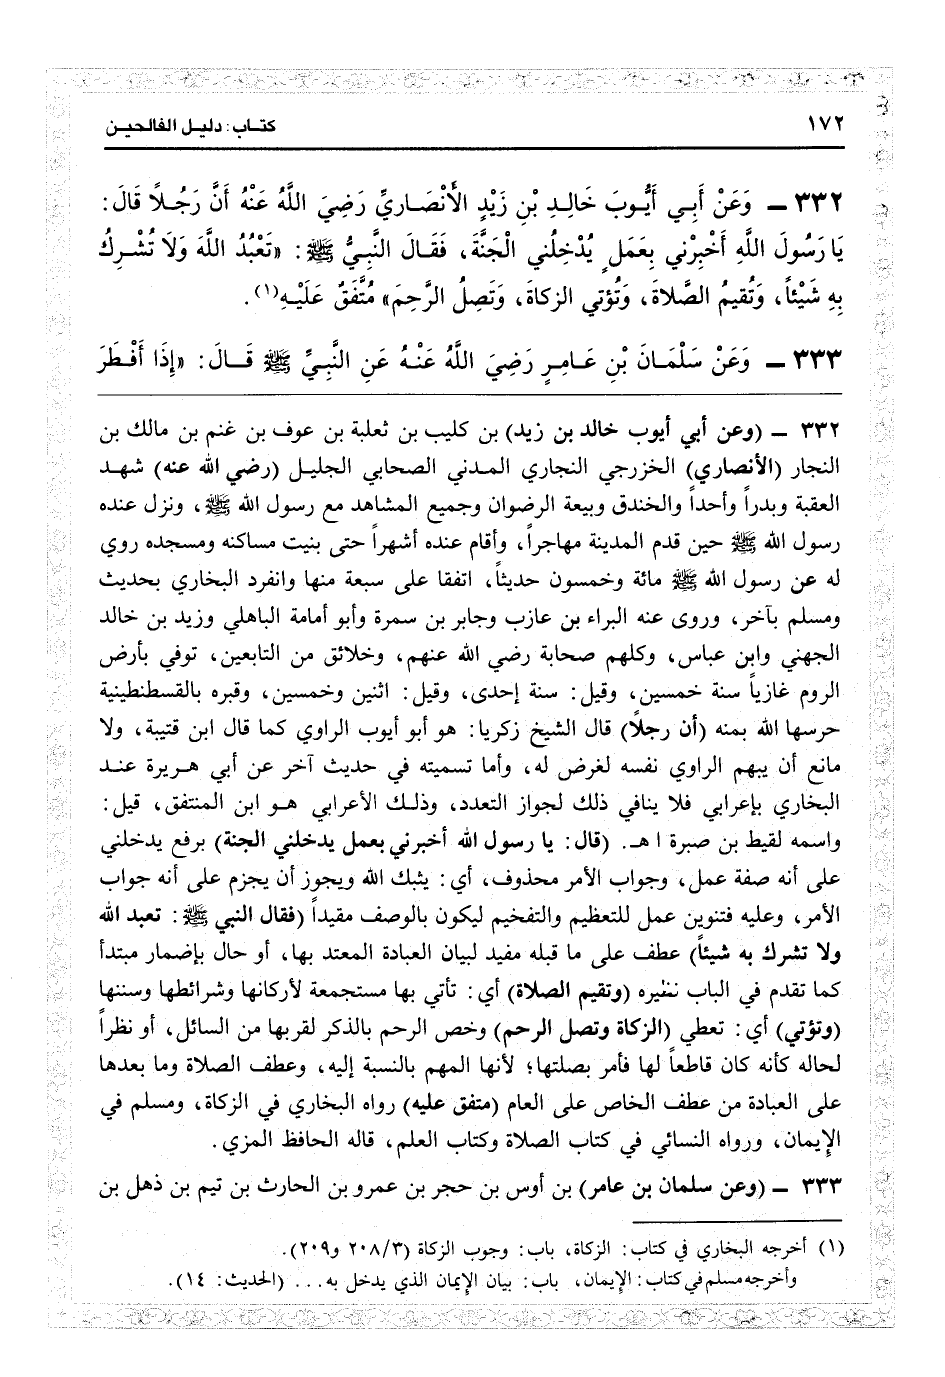 ١٧٢ كتاب: دليل الفالحين
٣٣٢ ـ وَعَنْ أَبِي أَيُّوبَ خَالِدِ بْنِ زَيْدٍ الأَنْصَارِيِّ رَضِيَ اللَّهُ عَنْهُ أَنَّ رَجُلاً قَالَ:
يَا رَسُولَ اللَّهِ أَخْبِرْنِي بِعَمَلٍ يُدْخِلُنِي الْجَنَّةَ، فَقَالَ النَّبِيُّ ﷺ: «تَعْبُدُ اللَّهَ وَلَا تُشْرِكُ
بِهِ شَيْئاً، وَتُقِيمُ الصَّلاةَ، وَتُؤتي الزكاةَ، وَتَصِلُ الرَّحِمَ» مُتَّفَقٌ عَلَيْهِ(١).
٣٣٣ ـ وَعَنْ سَلْمَانَ بْنِ عَامِرٍ رَضِيَ اللَّهُ عَنْهُ عَنِ النَّبِيِّ ﷺ قَالَ: «إِذَا أَفْطَرَ
٣٣٢ ـ (وعن أبي أيوب خالد بن زيد) بن كليب بن ثعلبة بن عوف بن غنم بن مالك بن
النجار (الأنصاري) الخزرجي النجاري المدني الصحابي الجليل (رضي الله عنه) شهد
العقبة وبدراً وأحداً والخندق وبيعة الرضوان وجميع المشاهد مع رسول الله ﷺ، ونزل عنده
رسول الله ﷺ حين قدم المدينة مهاجراً، وأقام عنده أشهراً حتى بنيت مساكنه ومسجده روي
له عن رسول الله ﷺ مائة وخمسون حديثاً، اتفقا على سبعة منها وانفرد البخاري بحديث
ومسلم بآخر، وروى عنه البراء بن عازب وجابر بن سمرة وأبو أمامة الباهلي وزيد بن خالد
الجهني وابن عباس، وكلهم صحابة رضي الله عنهم، وخلائق من التابعين، توفي بأرض
الروم غازياً سنة خمسين، وقيل: سنة إحدى، وقيل: اثنين وخمسين، وقبره بالقسطنطينية
حرسها الله بمنه (أن رجلاً) قال الشيخ زكريا: هو أبو أيوب الراوي كما قال ابن قتيبة، ولا
مانع أن يبهم الراوي نفسه لغرض له، وأما تسميته في حديث آخر عن أبي هريرة عند
البخاري بإعرابي فلا ينافي ذلك لجواز التعدد، وذلك الأعرابي هو ابن المنتفق، قيل:
واسمه لقيط بن صبرة ا هـ. (قال: يا رسول الله أخبرني بعمل يدخلني الجنة) برفع يدخلني
على أنه صفة عمل، وجواب الأمر محذوف، أي: يثبك الله ويجوز أن يجزم على أنه جواب
الأمر، وعليه فتنوين عمل للتعظيم والتفخيم ليكون بالوصف مقيداً (فقال النبي ﷺ: تعبد الله
ولا تشرك به شيئاً) عطف على ما قبله مفيد لبيان العبادة المعتد بها، أو حال بإضمار مبتدأ
كما تقدم في الباب نظيره (وتقيم الصلاة) أي: تأتي بها مستجمعة لأركانها وشرائطها وسننها
(وتؤتي) أي: تعطي (الزكاة وتصل الرحم) وخص الرحم بالذكر لقربها من السائل، أو نظراً
لحاله كأنه كان قاطعاً لها فأمر بصلتها؛ لأنها المهم بالنسبة إليه، وعطف الصلاة وما بعدها
على العبادة من عطف الخاص على العام (متفق عليه) رواه البخاري في الزكاة، ومسلم في
الإيمان، ورواه النسائي في كتاب الصلاة وكتاب العلم، قاله الحافظ المزي.
٣٣٣ ـ (وعن سلمان بن عامر) بن أوس بن حجر بن عمرو بن الحارث بن تيم بن ذهل بن
(١) أخرجه البخاري في كتاب: الزكاة، باب: وجوب الزكاة (٢٠٨/٣ و٢٠٩).
وأخرجه مسلم في كتاب: الإيمان، باب: بيان الإيمان الذي يدخل به... (الحديث: ١٤).